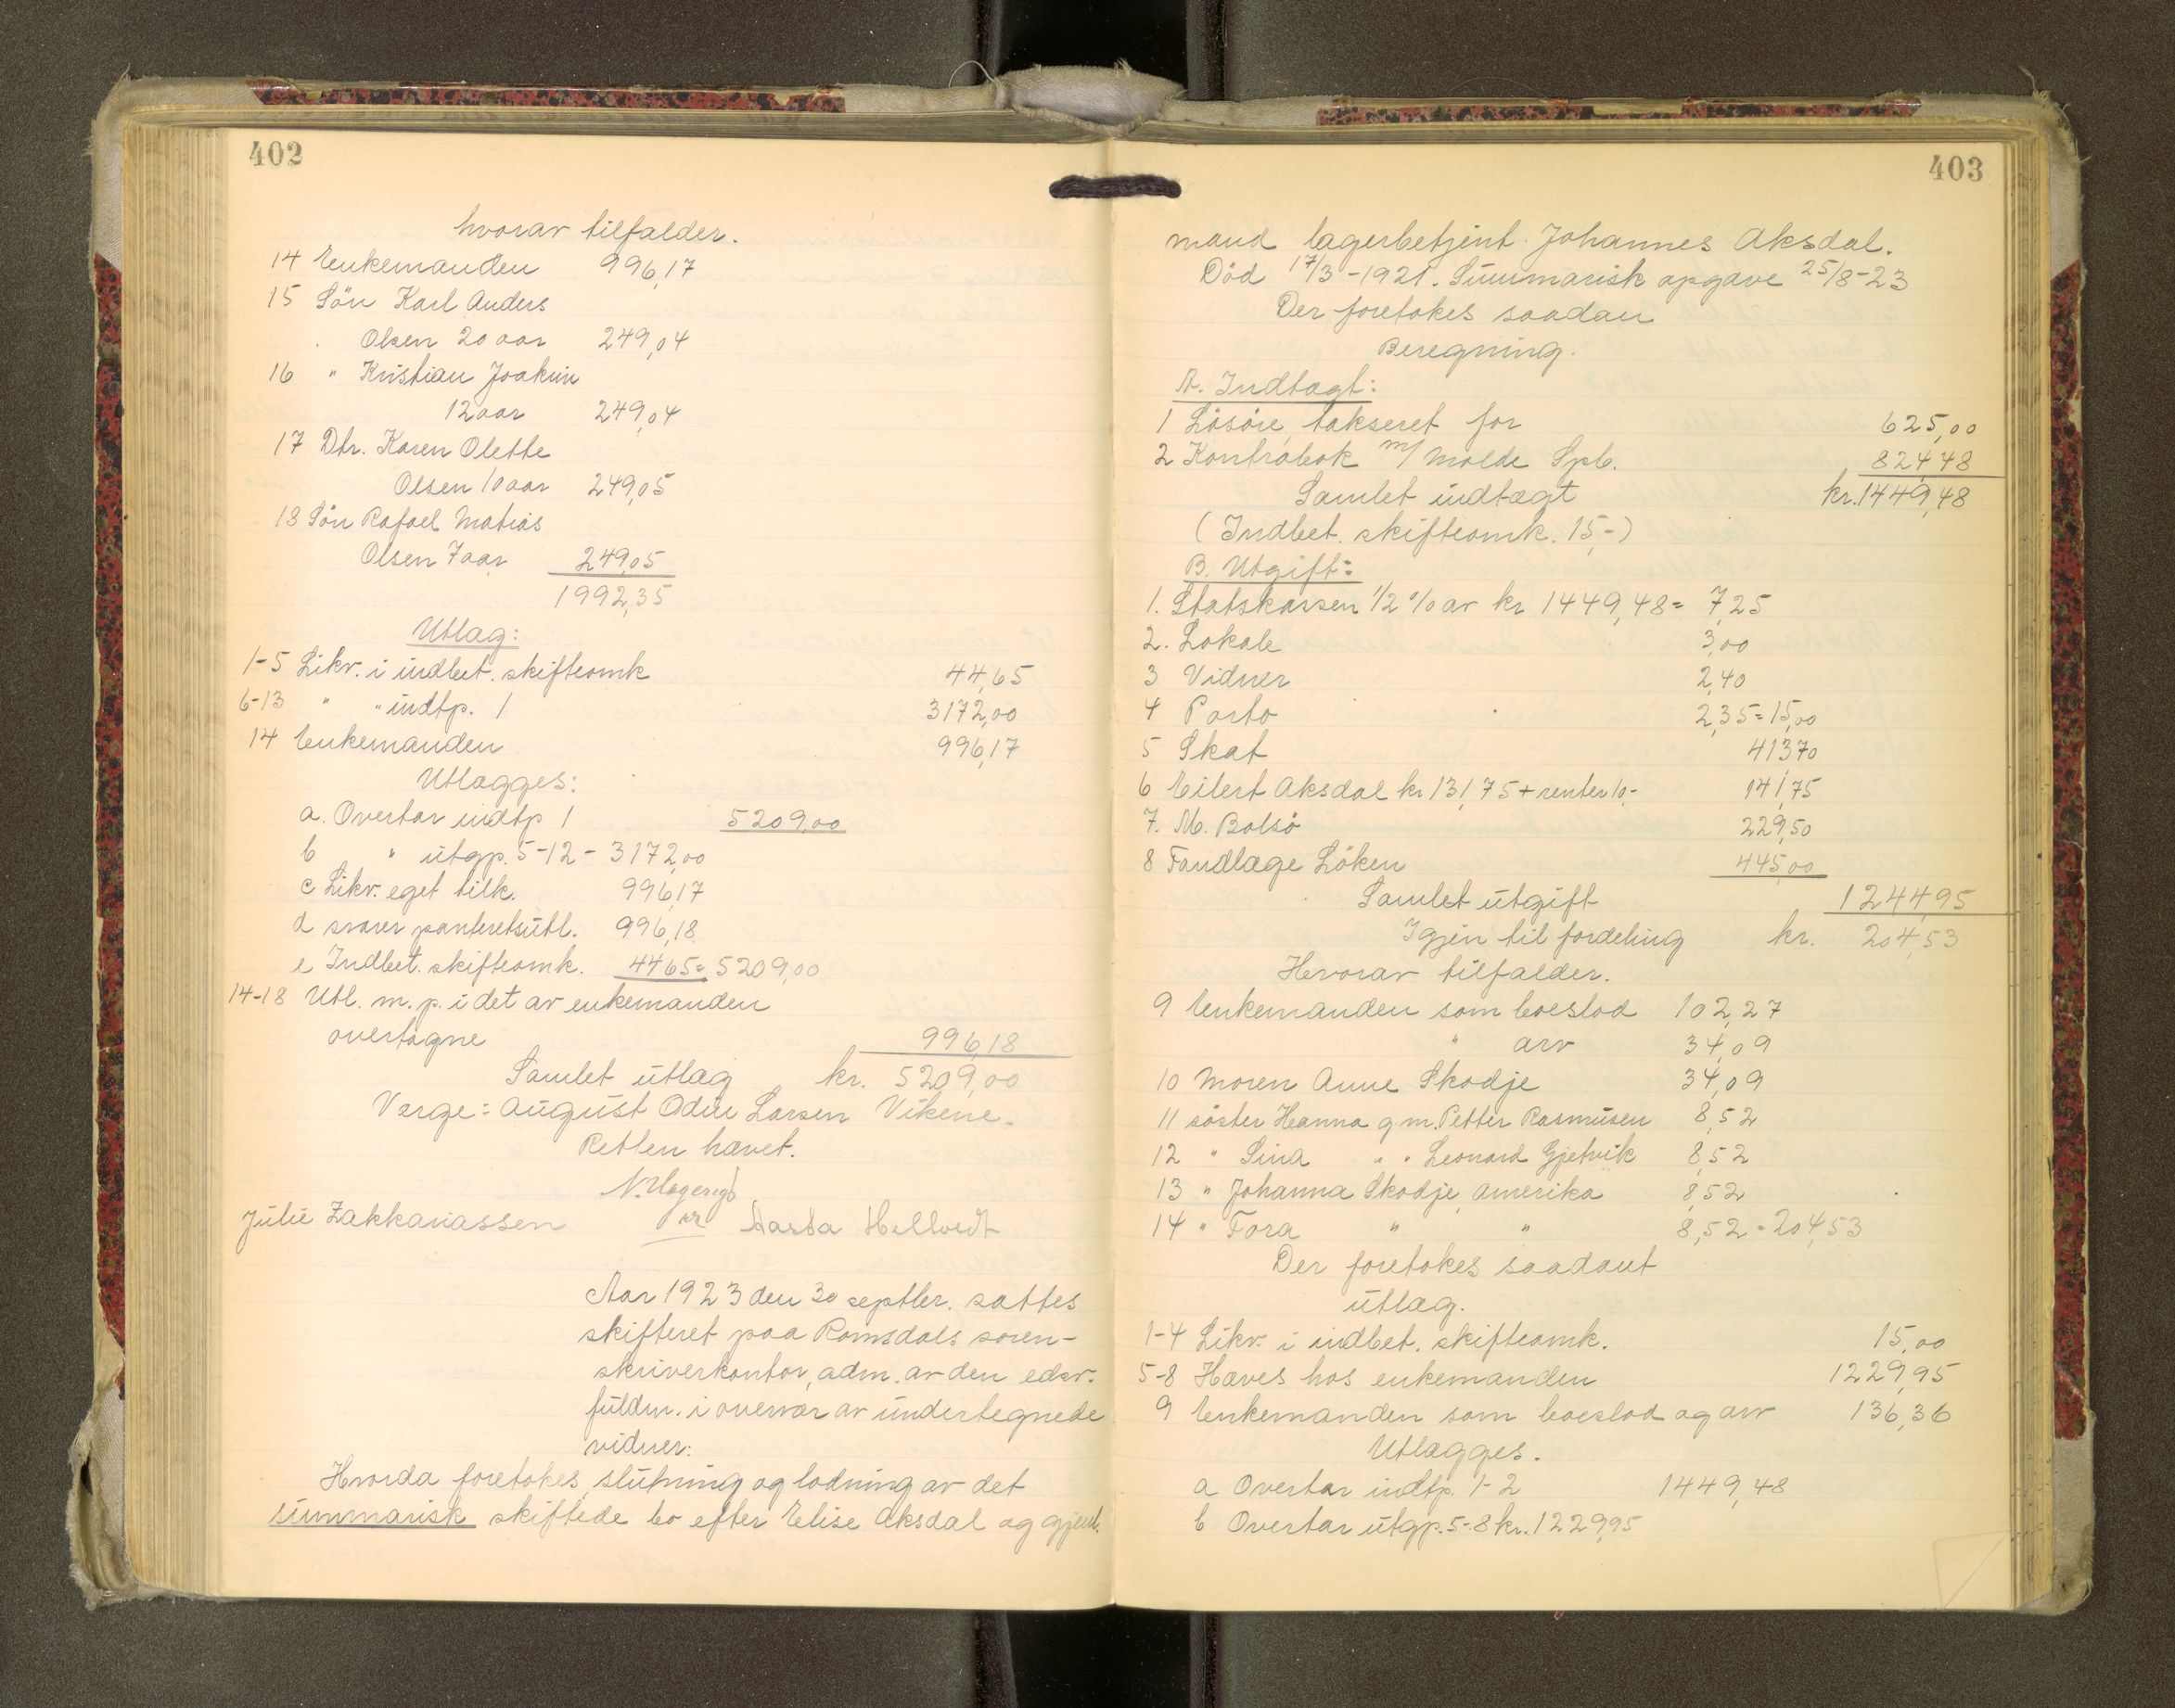 402
hvorav tilfalder.
14 Enkemanden 996,17
15 Sön Karl Anders
Olsen 20 aar 249,04
16 " Kristian Joakim
12 aar 249,04
17 Dtr. Karen Olette
Olsen 10 aar 249,05
18 Sön Rafael Matias
Olsen 7 aar 249,05
1992,35
Utlæg:
1-5 Likv. i indbet. skifteomk 44,65
6-13 " " indtp. 1 3172,00
14 Enkemanden 996,17
Utlægges:
a. Overtar indtp 1 5209,00
b " utgp. 5-12 - 3172,00
c Likv. eget tilk. 996,17
d svarer panteretsutl. 996,18
e Indbet. skifteomk. 44,65 = 5209,00
14-18 Utl. m. p. i det av enkemanden
overtagne 996,18
Samlet utlæg kr. 5209,00
Verge: August Odin Larsen Vikene.
Retten hævet.
Julie Zakkariassen Marta Hellvedt
Aar 1923 den 30 septbr. sattes
skifteret paa Romsdals soren-
skriverkontor, adm. av den edsv.
fuldm. i overvær av undertegnede
vidner:
Hvorda foretokes slutning og lodning av det
summarisk skiftede bo efter Elise Aksdal og gjenl.
403
mand lagerbetjent Johannes Aksdal.
Död 17/3-1921. Summarisk opgave 25/8-23
Der foretokes saadan
Beregning.
A. Indtægt:
1 Lösöre takseret for 625,00
2 Kontrabok m/ Molde Spb. 824,48
Samlet indtægt kr. 1449,48
(Indbet. skifteomk. 15,-)
B. Utgift:
1. Statskassen 1/2 % av kr 1449,48 = 7,25
2. Lokale 3,00
3 Vidner 2,40
4 Porto 2,35 = 15,00
5 Skat 413,70
6 Eilert Aksdal kr 131,75 + renter 10,- 141,75
7. M. Bolsö 229,50
8 Tandlæge Löken 445,00
Samlet utgift 1244,95
Igjen til fordeling kr. 204,53
Hvorav tilfalder.
9 Enkemanden som boeslod 102,27
" arv 34,09
10 Moren Anne Skodje 34,09
11 söster Hanna g. m. Petter Rasmusen 8,52
12 " Sina " " Leonard Gjetvik 8,52
13 " Johanna Skodje, Amerika 8,52
14 " Tora " " 8,52 = 204,53
Der foretokes saadant
utlæg.
1-4 Likv. i indbet. skifteomk. 15,00
5-8 Hæves hos enkemanden 1229,95
9 Enkemanden som boeslod og arv 136,36
Utlægges.
a Overtar indtp. 1-2 1449,48
b Overtar utgp. 5-8 kr. 1229,95